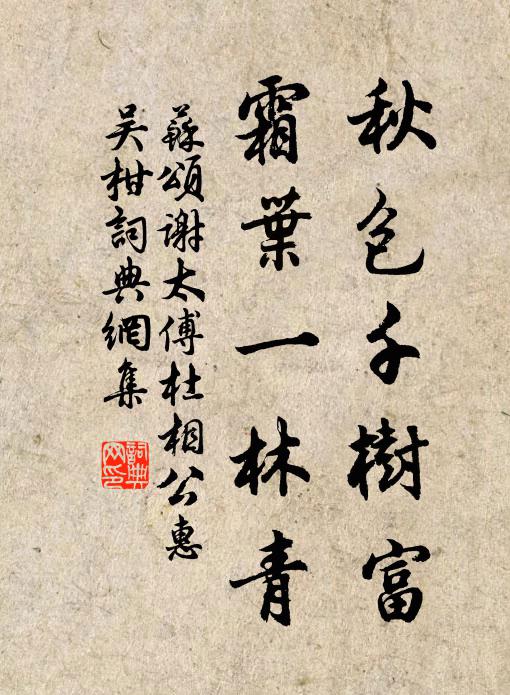 秋色千樹富
霜葉一林青
蘇頌謝太傅杜相公惠
吴柑詞典網集
詞典网印